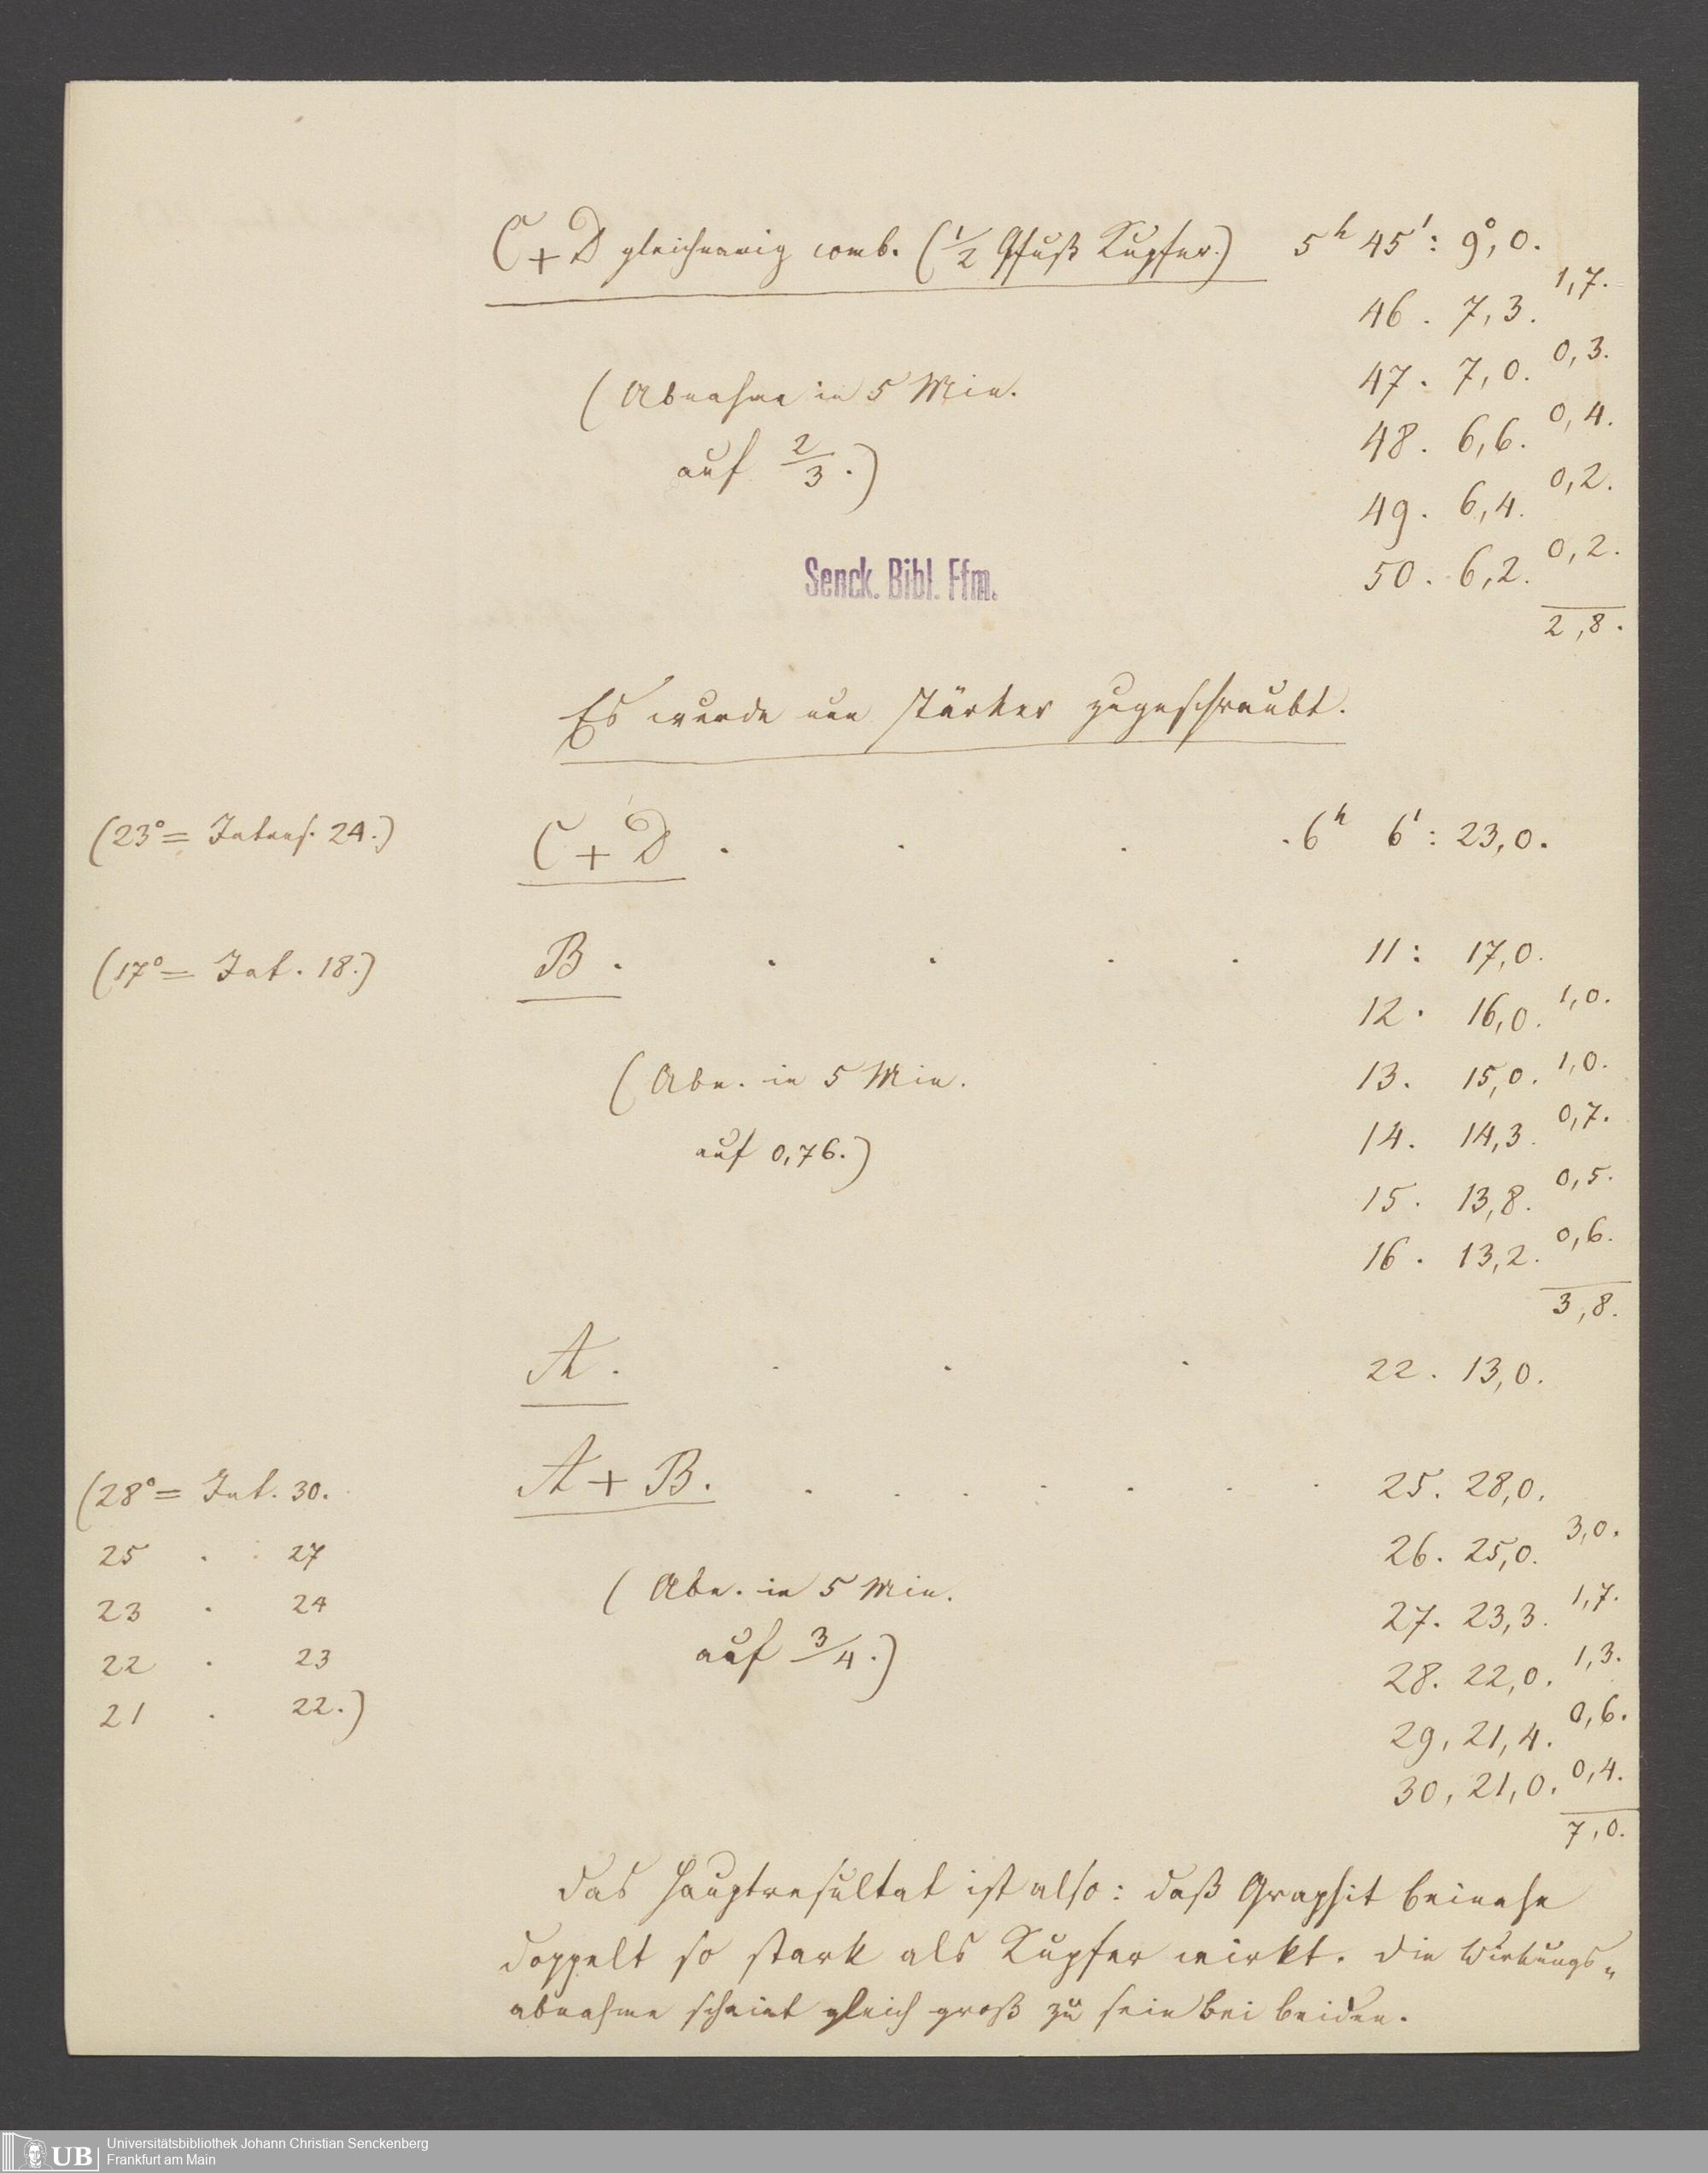 C + D gleichnamig comb. (1/2 Qfuß Kupfer.) 5h 45': 9°,0.
1,7.
46. 7,3.
0,3.
(Abnahme in 5 Min. 47. 7,0.
0,4.
auf 2/3.) 48. 6,6.
0,2.
49. 6,4.
0,2.
Senck. Bibl. Ffm. 50. 6,2.
2,8.
Es wurde nun stärker zugeschraubt.
(23° = Intens. 24.) C + D . . . . 6h 6': 23,0.
(17° = Int. 18.) B . . . . . 11: 17,0.
12. 16,0. 1,0.
(Abn. in 5 Min. 13. 15,0. 1,0.
auf 0,76.) 14. 14,3. 0,7.
15. 13,8. 0,5.
16. 13,2. 0,6.
3,8.
A. . . . 22. 13,0.
(28° = Int. 30. A + B. . . . . . . . 25. 28,0.
25 . 27 26. 25,0. 3,0.
23 . 24 (Abn. in 5 Min. 27. 23,3. 1,7.
22 . 23 auf 3/4.) 28. 22,0. 1,3.
21 . 22.) 29. 21,4. 0,6.
30. 21,0. 0,4.
7,0.
Das Hauptresultat ist also: daß Graphit beinahe
doppelt so stark als Kupfer wirkt. Die Wirkungs„
abnahme scheint gleich groß zu sein bei beiden.
UB Universitätsbibliothek Johann Christian Senckenberg
Frankfurt am Main